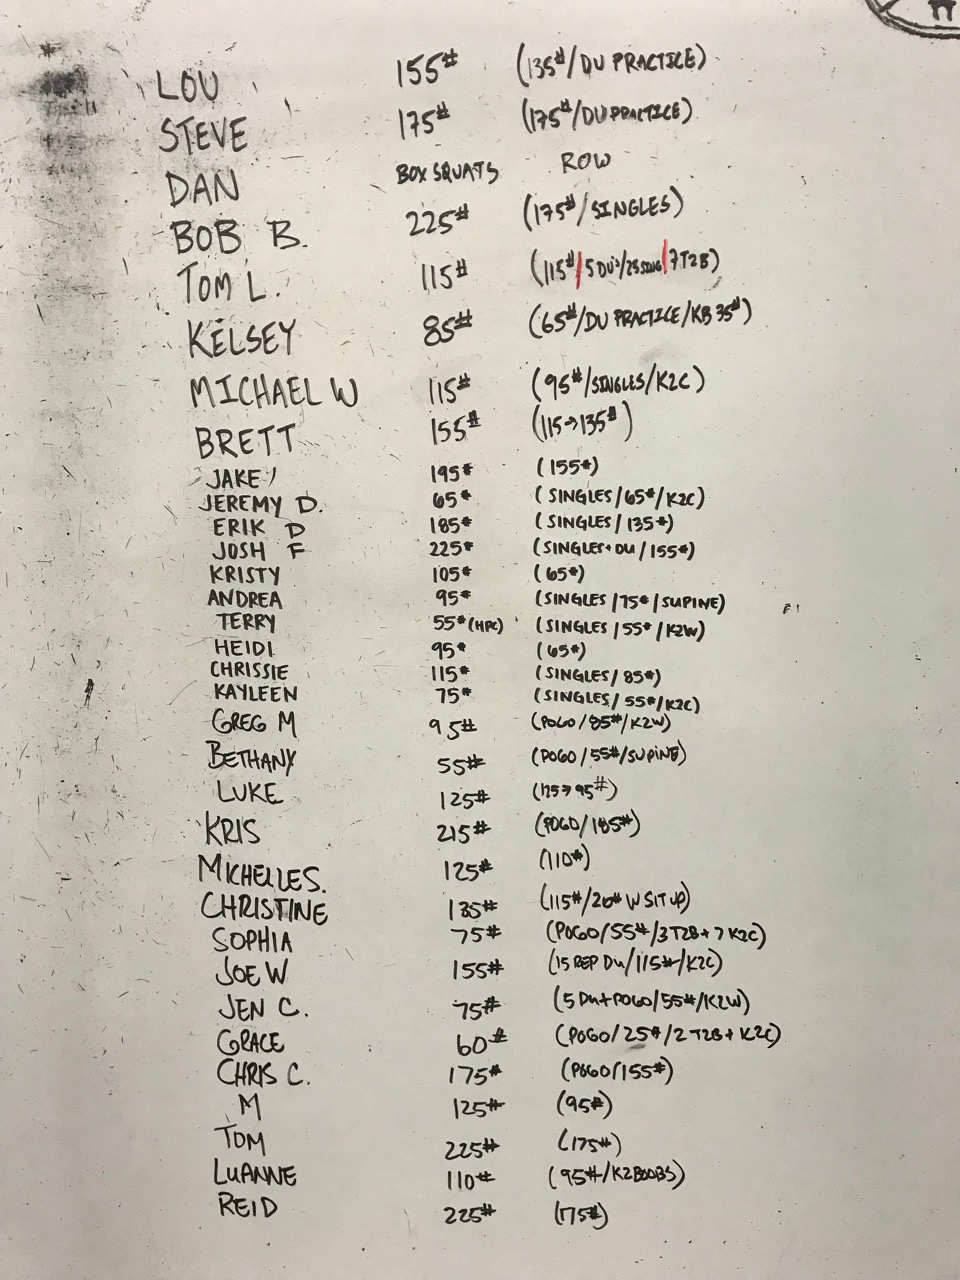 LOU 155# (135#/DU PRACTICE)
STEVE 175# (175#/DU PRACTICE)
DAN BOX SQUATS ROW
BOB B. 225# (175#/SINGLES)
TOM L. 115# (115#/5 DU's/25 SING/7 T2B)
KELSEY 85# (65#/DU PRACTICE/KB 35#)
MICHAEL W 115# (95#/SINGLES/K2C)
BRETT 155# (115→135#)
JAKE 195# (155#)
JEREMY D. 65# (SINGLES/65#/K2C)
ERIK D 185# (SINGLES/135#)
JOSH F 225# (SINGLES+DU/155#)
KRISTY 105# (65#)
ANDREA 95# (SINGLES/75#/SUPINE)
TERRY 55# (HPC) (SINGLES/55#/K2W)
HEIDI 95# (65#)
CHRISSIE 115# (SINGLES/85#)
KAYLEEN 75# (SINGLES/55#/K2C)
GREG M 95# (POGO/85#/K2W)
BETHANY 55# (POGO/55#/SUPINE)
LUKE 125# (125→95#)
KRIS 215# (POGO/185#)
MICHELLE S. 125# (110#)
CHRISTINE 135# (115#/20# W SIT UP)
SOPHIA 75# (POGO/55#/3 T2B+7 K2C)
JOE W 155# (15 REP DU/115#/K2C)
JEN C. 75# (5 DU+POGO/55#/K2W)
GRACE 60# (POGO/25#/2 T2B+K2C)
CHRIS C. 175# (POGO/155#)
M 125# (95#)
TOM 225# (175#)
LUANNE 110# (95#/K2BOOBS)
REID 225# (175#)